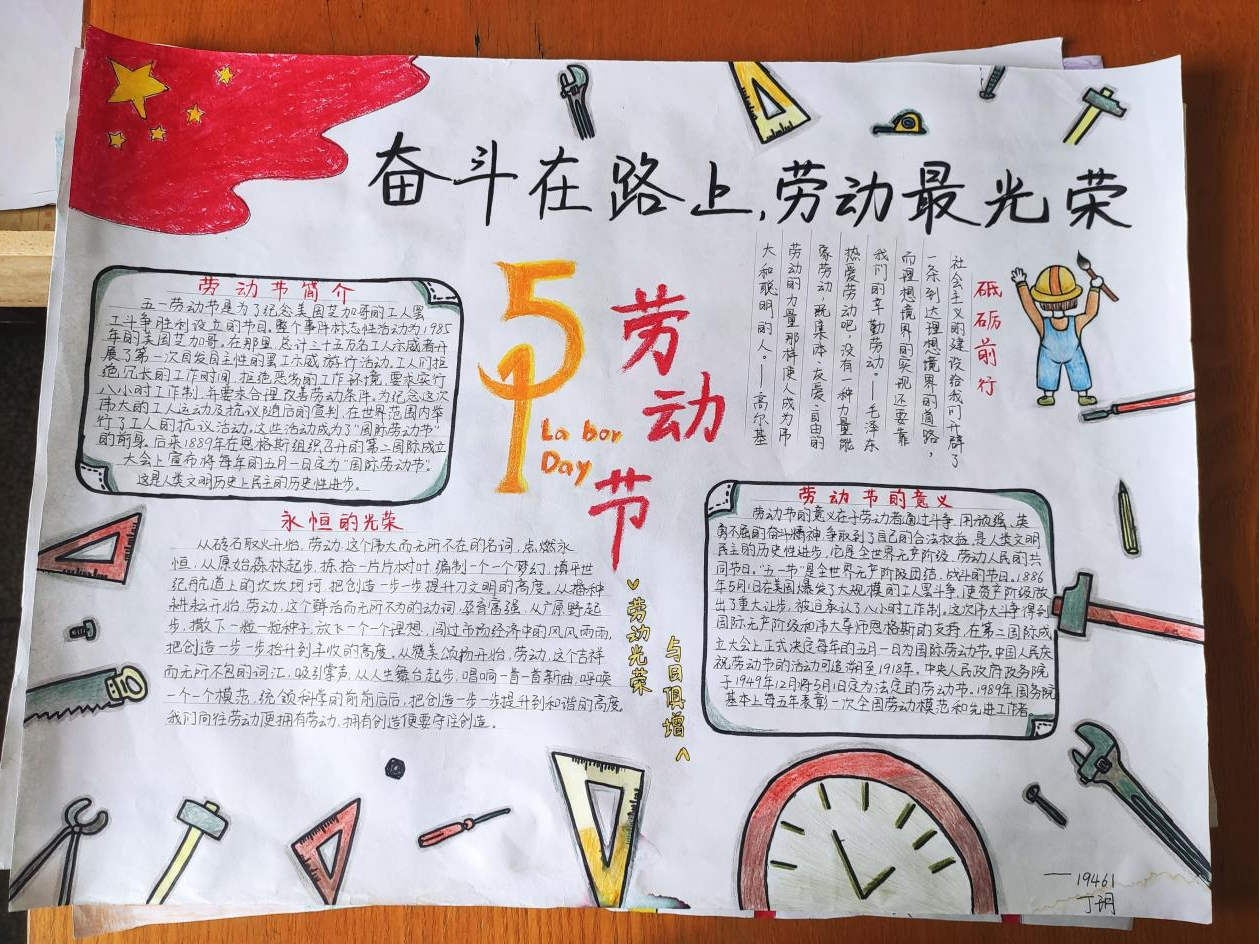 奋斗在路上,劳动最光荣
劳动节简介
五一劳动节是为了纪念美国芝加哥的工人罢
工斗争胜利设立的节日。整个事件标志性活动为1985
年的美国芝加哥,在那里,总计三十五万名工人示威者开
展了第一次自发自主性的罢工示威游行活动。工人们拒
绝冗长的工作时间,拒绝恶劣的工作环境,要求实行
八小时工作制,并要求合理改善劳动条件。为纪念这次
伟大的工人运动及抗议随后的宣判,在世界范围内举
行了工人的抗议活动。这些活动成为了“国际劳动节”
的前身。后来1889年在恩格斯组织召开的第二国际成立
大会上宣布将每年的五月一日定为“国际劳动节”。
这是人类文明历史上民主的历史性进步。
51
Labor
Day
劳动节
砥砺前行
社会主义的建设给我们开辟了
一条到达理想境界的道路,
而理想境界的实现还要靠
我们的辛勤劳动。——毛泽东
热爱劳动吧,没有一种力量能
象劳动,既集体、友爱、自由的
劳动的力量那样使人成为伟
大和聪明的人。——高尔基
永恒的光荣
从砖石取火开始,劳动,这个伟大而无所不在的名词,点燃永
恒,从原始森林起步,拣拾一片片树叶,编制一个一个梦幻,填平世
纪航道上的坎坎坷坷,把创造一步一步提升刀文明的高度。从播种
耕耘开始,劳动,这个鲜活而无所不为的动词,孕育富强,从广原野起
步,撒下一粒一粒种子,放飞一个一个理想,闯过市场经济中的风风雨雨,
把创造一步一步抬升到丰收的高度。从赞美颂扬开始,劳动,这个吉祥
而无所不包的词汇,吸引掌声,从人生舞台起步,唱响一首一首新曲,呼唤
一个一个模范,统领科学的前前后后,把创造一步一步提升到和谐的高度。
我们向往劳动便拥有劳动,拥有创造便要守住创造。
劳动光荣
与日俱增
劳动节的意义
劳动节的意义在于劳动者通过斗争,用顽强、英
勇不屈的奋斗精神,争取到了自己的合法权益,是人类文明
民主的历史性进步,它是全世界无产阶级、劳动人民的共
同节日。“五一节”是全世界无产阶段团结、战斗的节日。1886
年5月1日在美国爆发了大规模的工人罢斗争,使资产阶级做
出了重大让步,被迫承认了八小时工作制。这次伟大斗争得到
国际无产阶级和伟大导师恩格斯的支持,在第二国际成
立大会上正式决定每年的五月一日为国际劳动节。中国人民庆
祝劳动节的活动可追溯至1918年。中央人民政府政务院
于1949年12月将5月1日定为法定的劳动节。1989年国务院
基本上每五年表彰一次全国劳动模范和先进工作者
——19461
丁玥